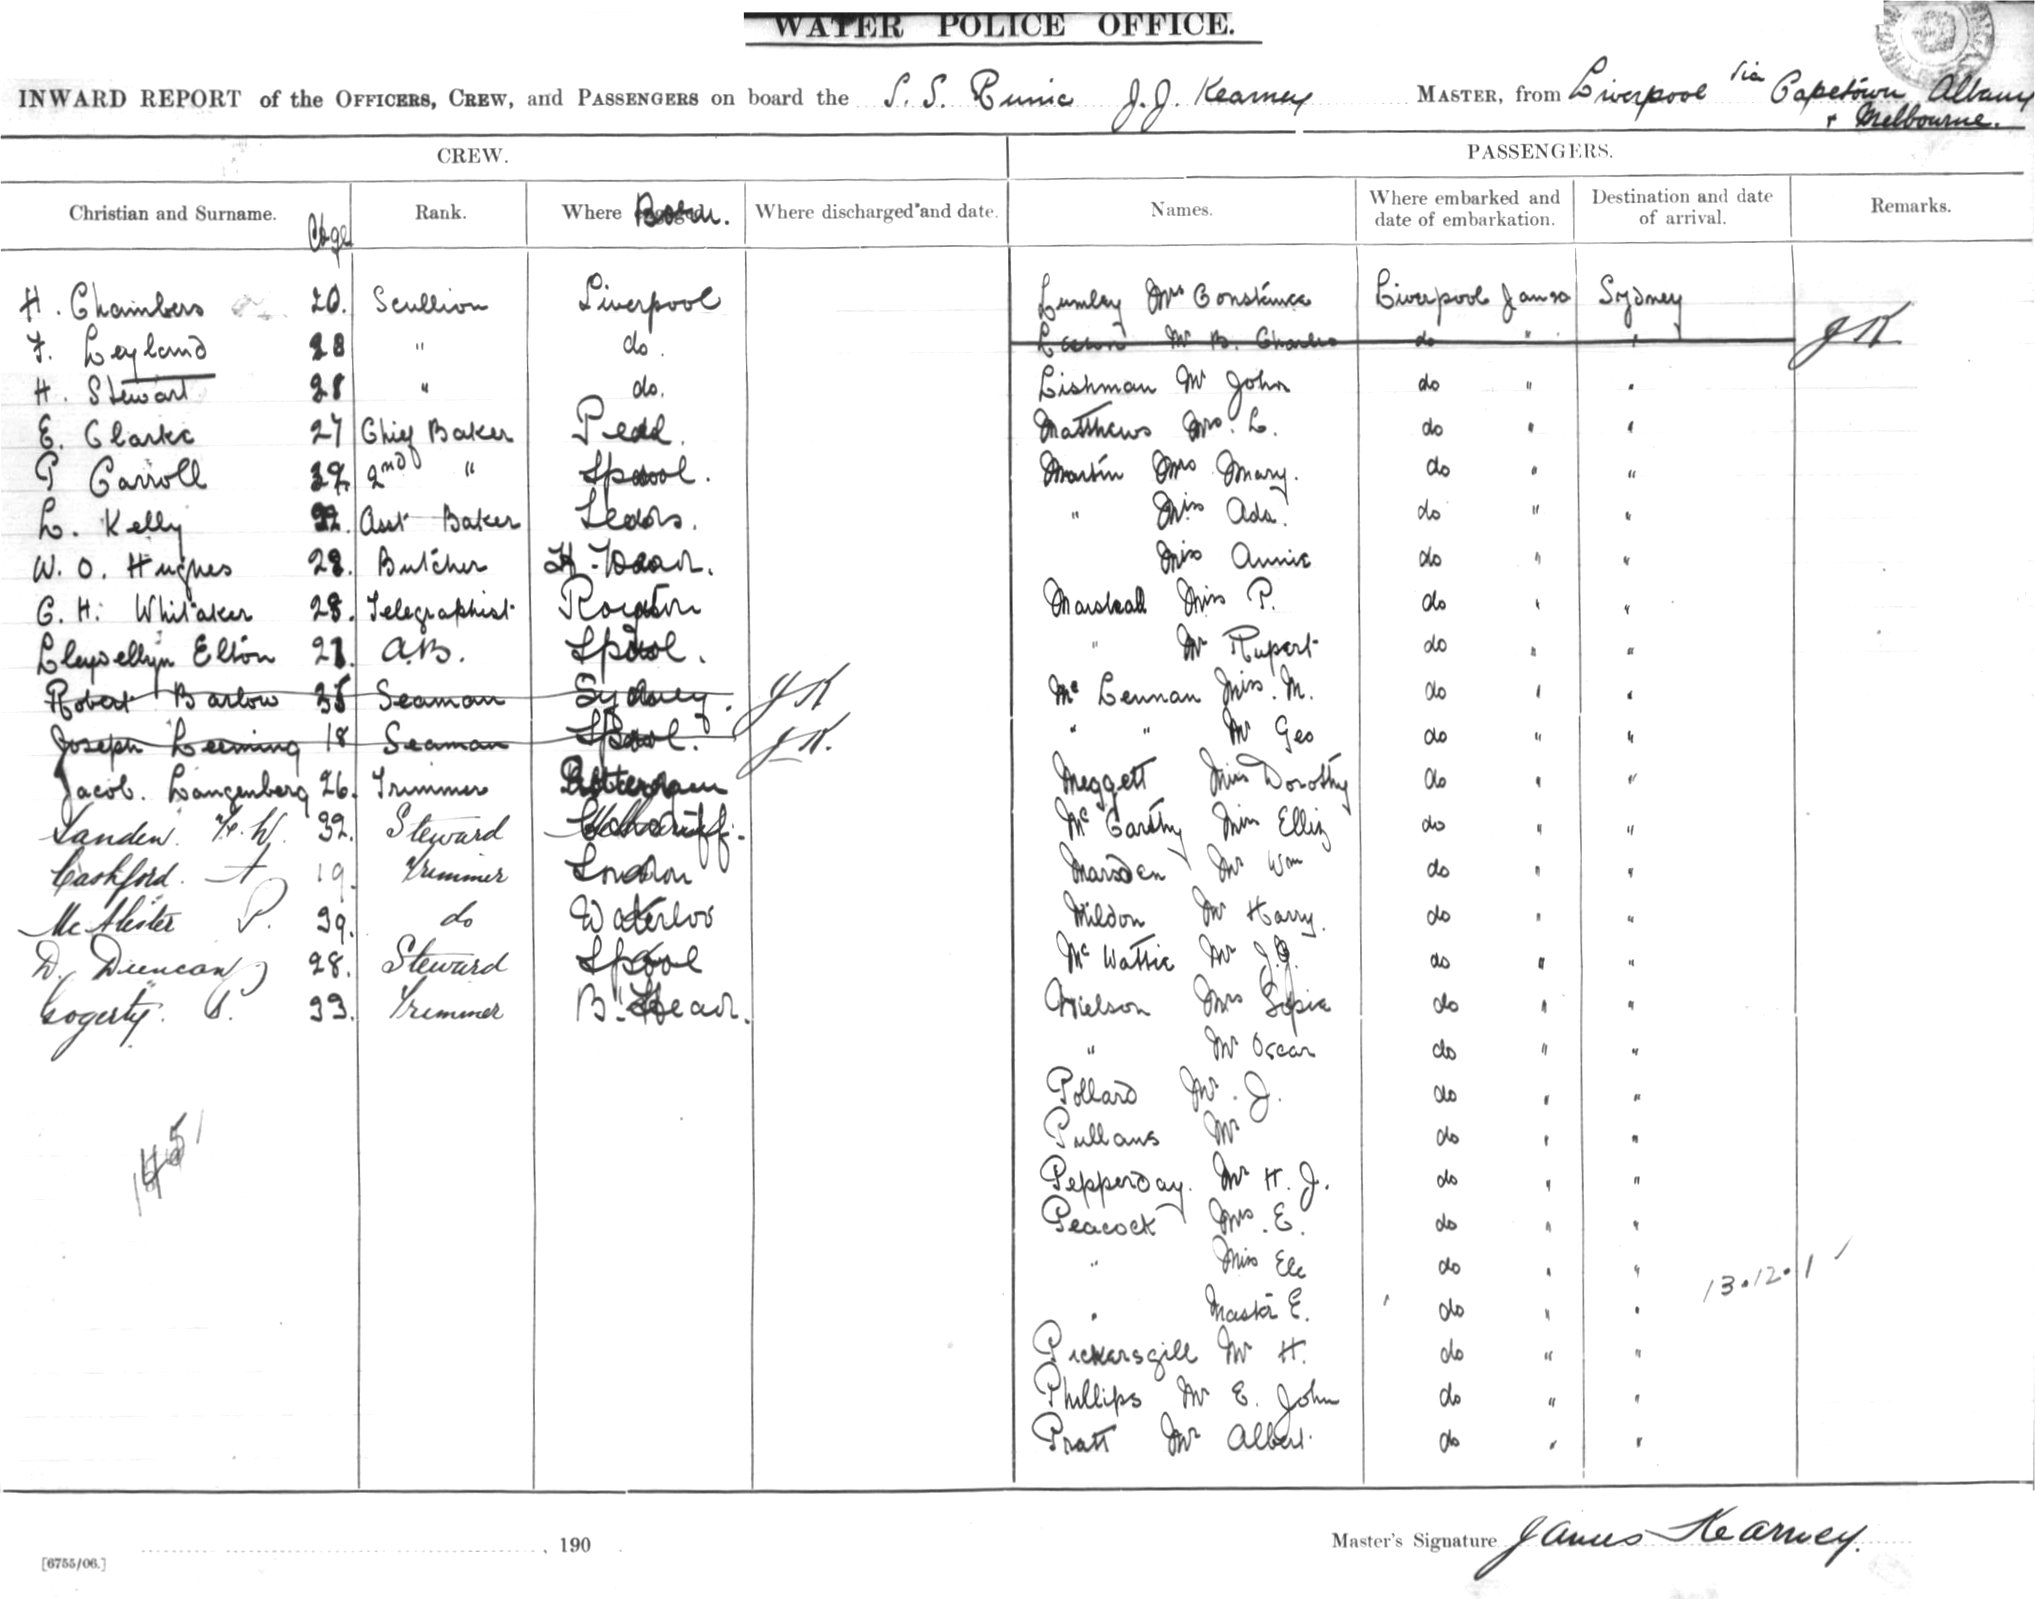 WATER POLICE OFFICE.
INWARD REPORT of the OFFICERS, CREW, and PASSENGERS on board the S. S. Runic J. J. Kearney MASTER, from Liverpool via Capetown Albany
+ Melbourne.
CREW.
Christian and Surname. Age Rank. Where Born. Where discharged and date.
H. Chambers 20. Scullion Liverpool
F. Leyland 28 " do.
H. Stewart 28 " do.
E. Clarke 27 Chief Baker
P Carroll 2nd " Lpool.
L. Kelly Asst Baker
W. O. Hughes 28. Butcher
G. H. Whitaker 28. Telegraphist
Llewellyn Elton A.B. Lpool.
Robert Barlow 35 Seaman Sydney. JK
Joseph Leeming 18 Seaman Lpool. JK.
Jacob. Langenberg 26. Trimmer Rotterdam
Landen. W. 32. Steward
Cashford. A 19. Trimmer London
McAlister P. 39. do Waterloo
D. Duncan 28. Steward Lpool
Gogerty. 33. Trimmer B. Head.
1451
PASSENGERS.
Names. Where embarked and date of embarkation. Destination and date of arrival. Remarks.
Lumley Mrs Constance Liverpool Jan 20 Sydney
Mr B. Charles do " " JK
Lishman Mr John do " "
Matthews Mrs. L. do " "
Martin Mrs Mary. do " "
" Miss Ada. do " "
Miss Annie do " "
Marshall Miss P. do " "
" Mr Rupert do " "
Mc Lennan Miss. M. do " "
" " Mr Geo do " "
Meggett Miss Dorothy do " "
Mc Carthy Miss do " "
Marsden Mr Wm do " "
Mildon Mr Harry. do " "
Mc Wattie Mr J. do " "
Nielson Mrs Sopie do " "
" Mr Oscar do " "
Pollard Mr. J. do " "
Pullans Mr do " "
Pepperday. Mr H. J. do " "
Peacock Mrs. E. do " "
" Miss do " "
" Master E. do " "
13.12.1
Pickersgill Mr H. do " "
Phillips Mr E. John do " "
Pratt Mr Albert. do " "
, 190
Master's Signature James Kearney.
[6755/06.]